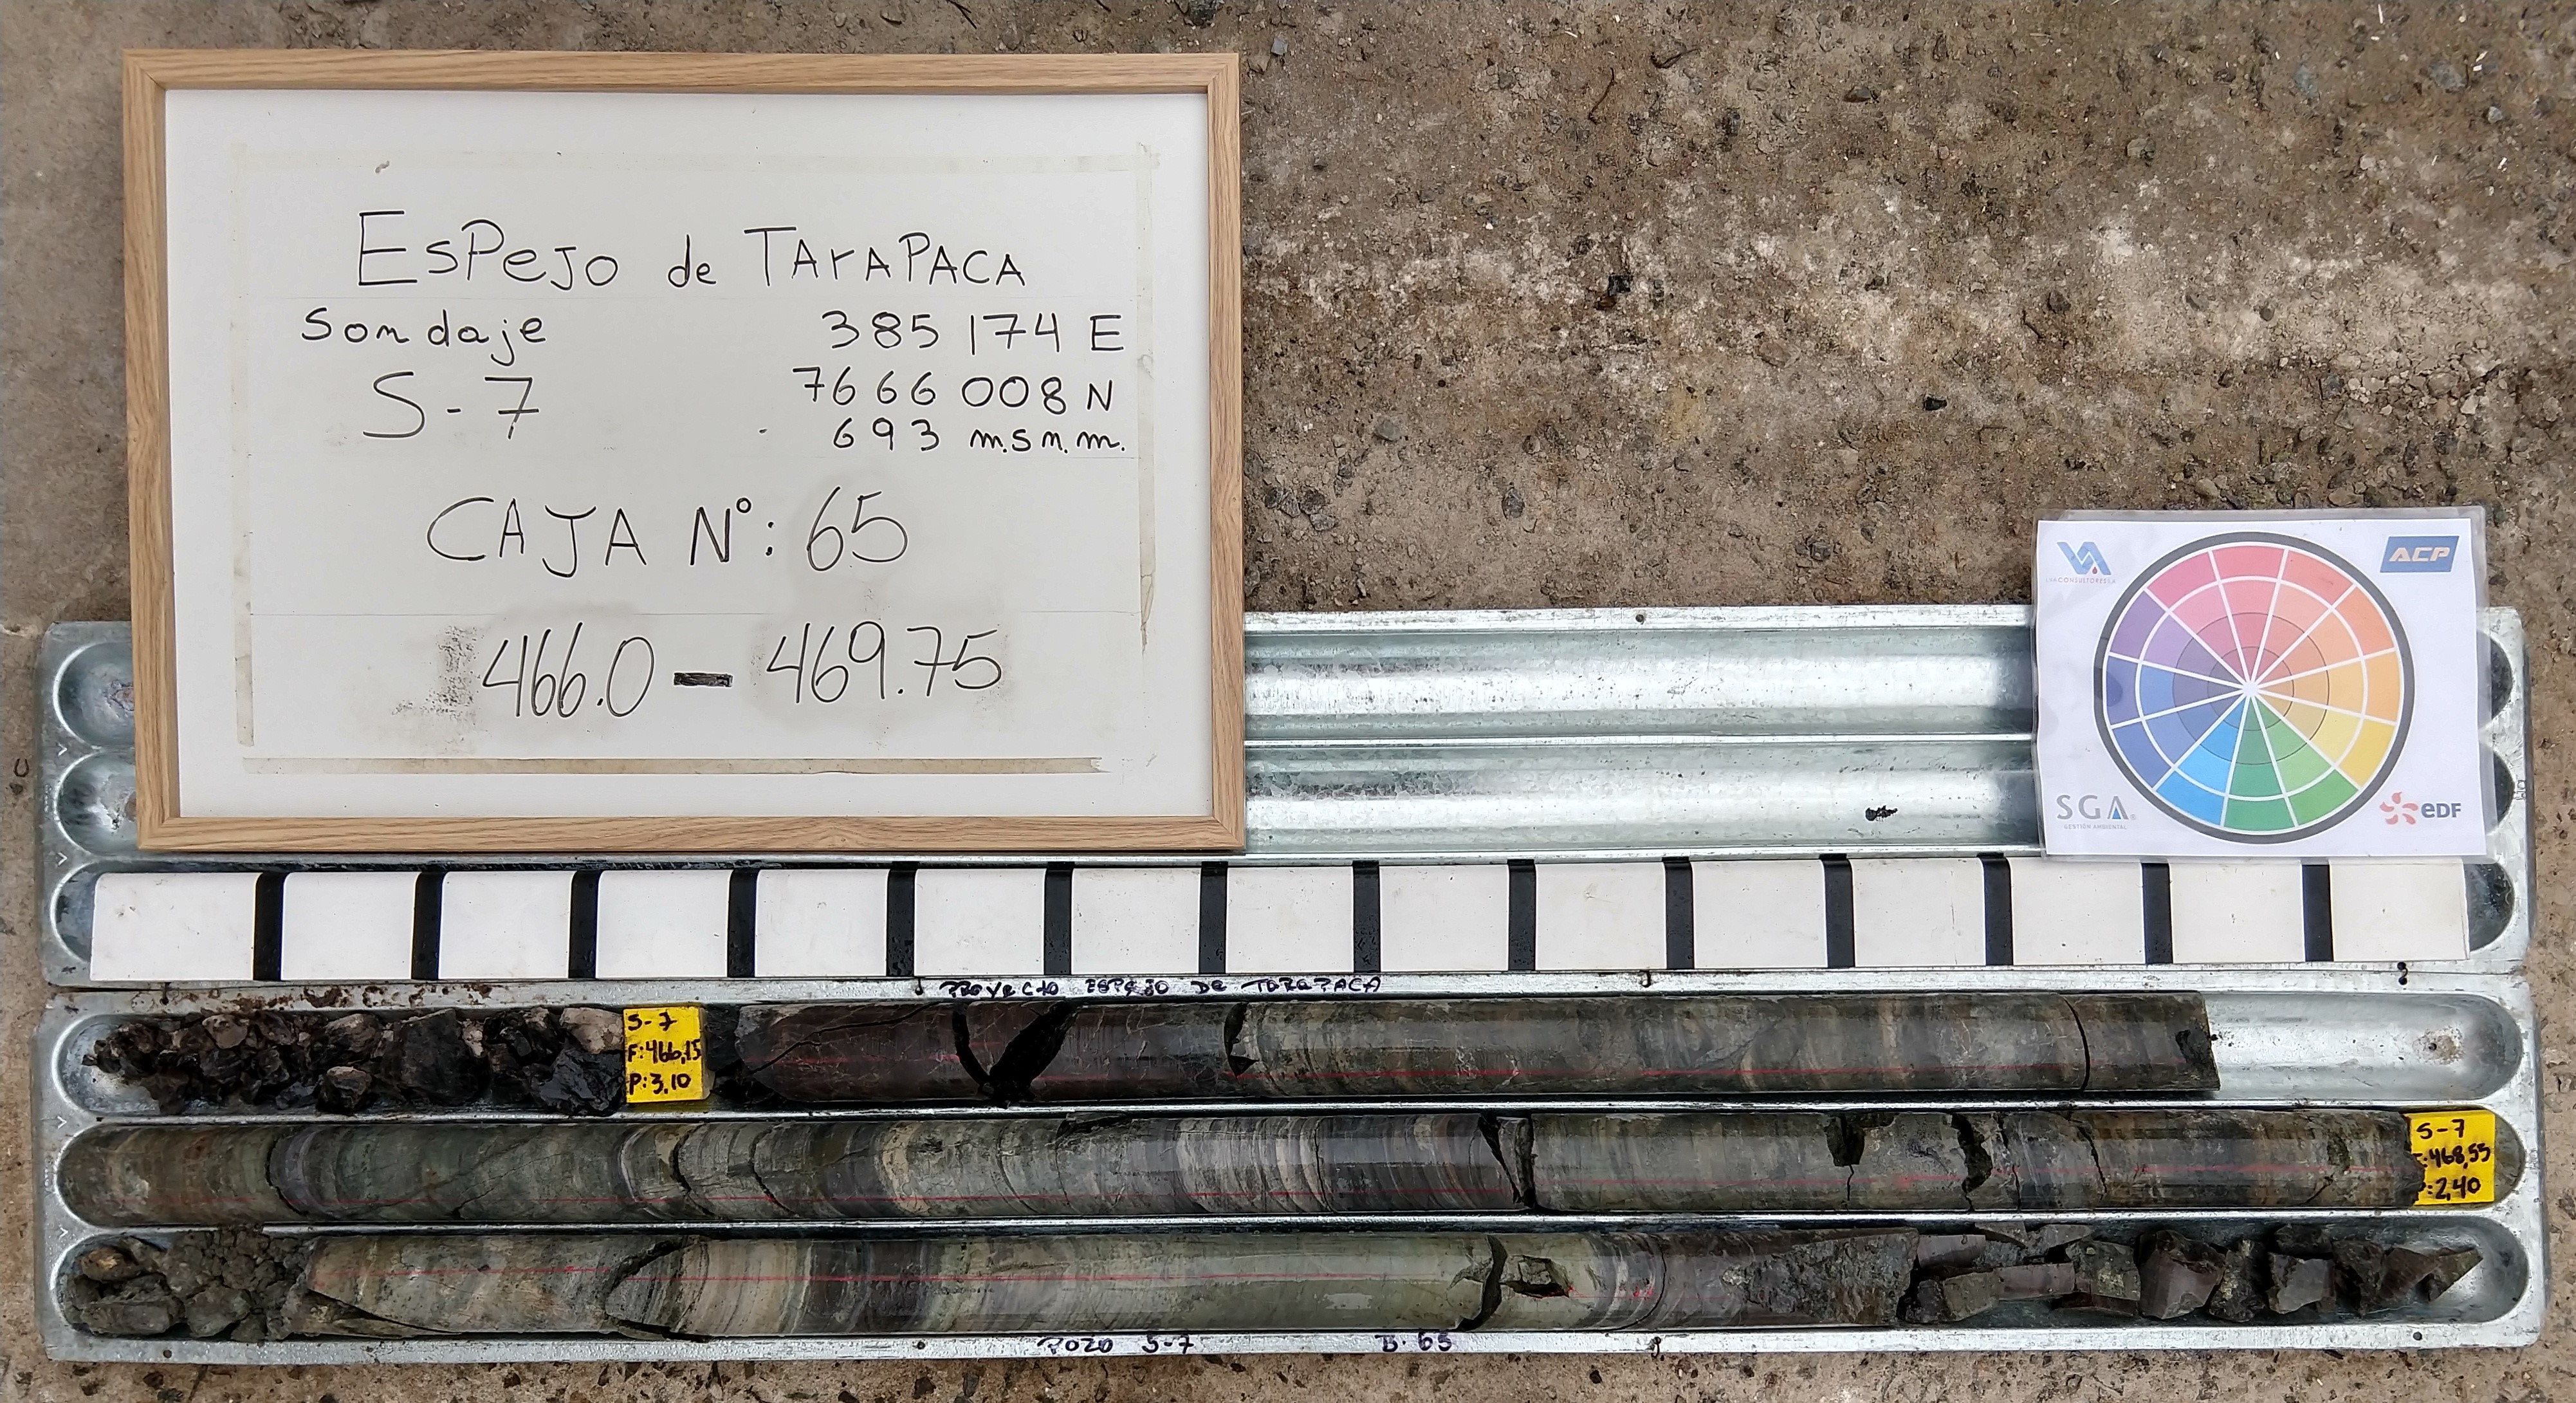 ESPEJO de TArAPACA
Sondaje
S-7
385 174 E
7666 008 N
693 m.s.n.m.
CAJA N°: 65
466.0 — 469.75
ACP
SGA
GESTIÓN AMBIENTAL
eDF
PROYECTO ESPEJO DE TARAPACA
S-7
F:466,15
P:3,10
S-7
:468,55
P:2,40
POZO S-7 B. 65